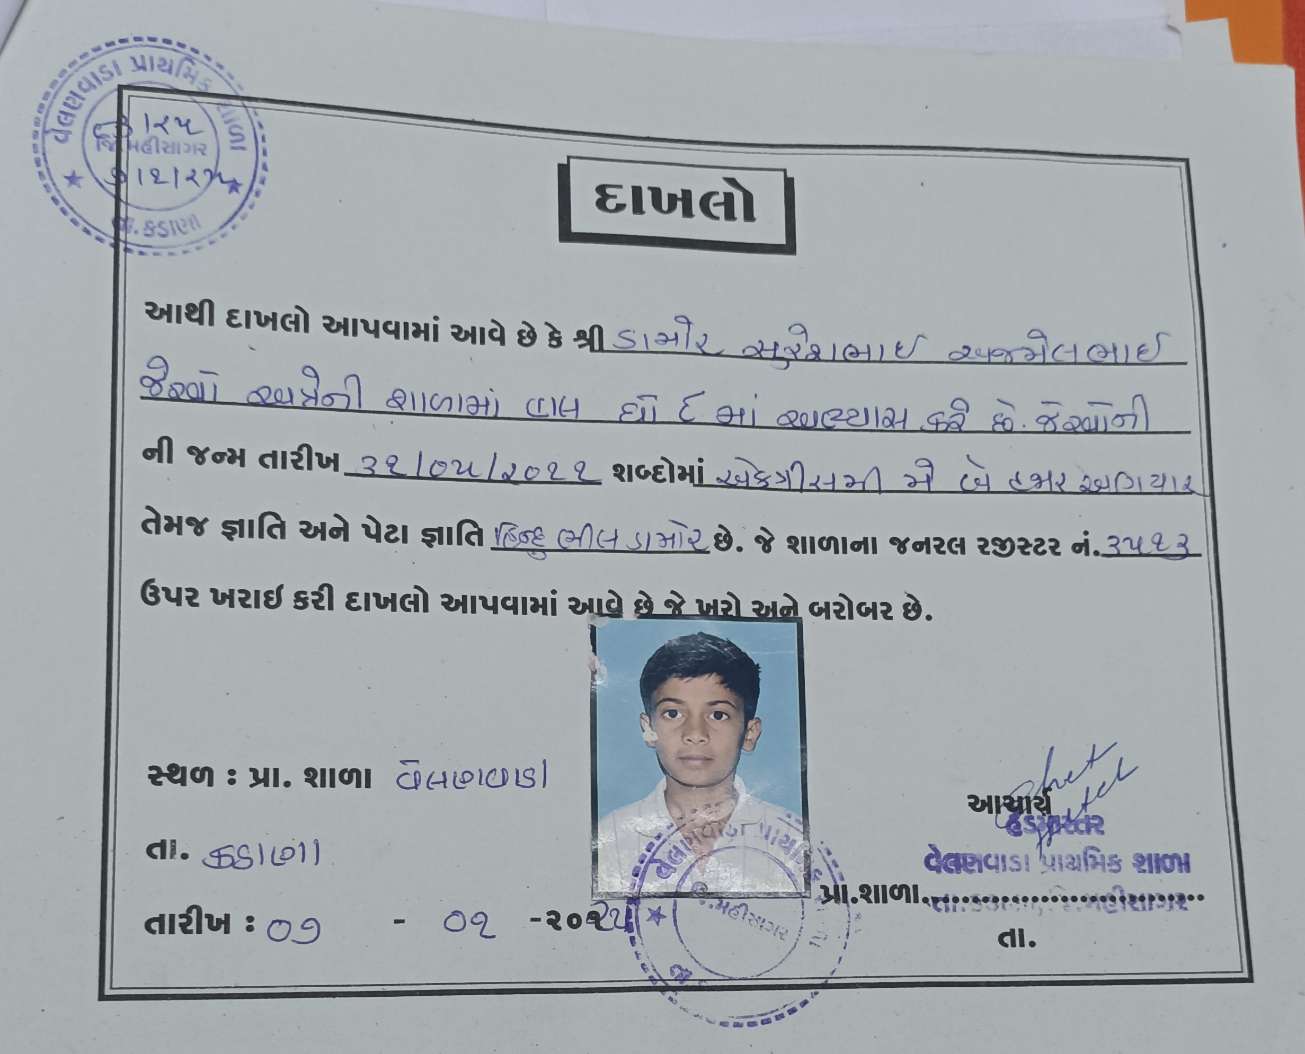 વેલણવાડા પ્રાથમિક શાળા
જિ.મહીસાગર
તા.કડાણા
દાખલો
આથી દાખલો આપવામાં આવે છે કે શ્રી ડામોર સુરેશભાઇ અજમેલભાઇ
જેઓ અત્રેની શાળામાં હાલ ધો ૬ માં અભ્યાસ કરે છે. જેઓની
ની જન્મ તારીખ ૩૧/૦૫/૨૦૧૧ શબ્દોમાં એકત્રીસમી મે બે હજાર અગિયાર
તેમજ જ્ઞાતિ અને પેટા જ્ઞાતિ હિન્દુ ભીલ ડામોર છે. જે શાળાના જનરલ રજીસ્ટર નં. ૩૫૧૩
ઉપર ખરાઇ કરી દાખલો આપવામાં આવે છે જે ખરો અને બરોબર છે.
સ્થળ : પ્રા. શાળા વેલણવાડા
આચાર્ય
હેડમાસ્તર
તા. કડાણા
વેલણવાડા પ્રાથમિક શાળા
પ્રા.શાળા
તા.કડાણા, જિ.મહીસાગર
તારીખ : ૦૭ - ૦૧ -૨૦૨૫
તા.
વેલણવાડા પ્રાથમિક શાળા
જિ.મહીસાગર